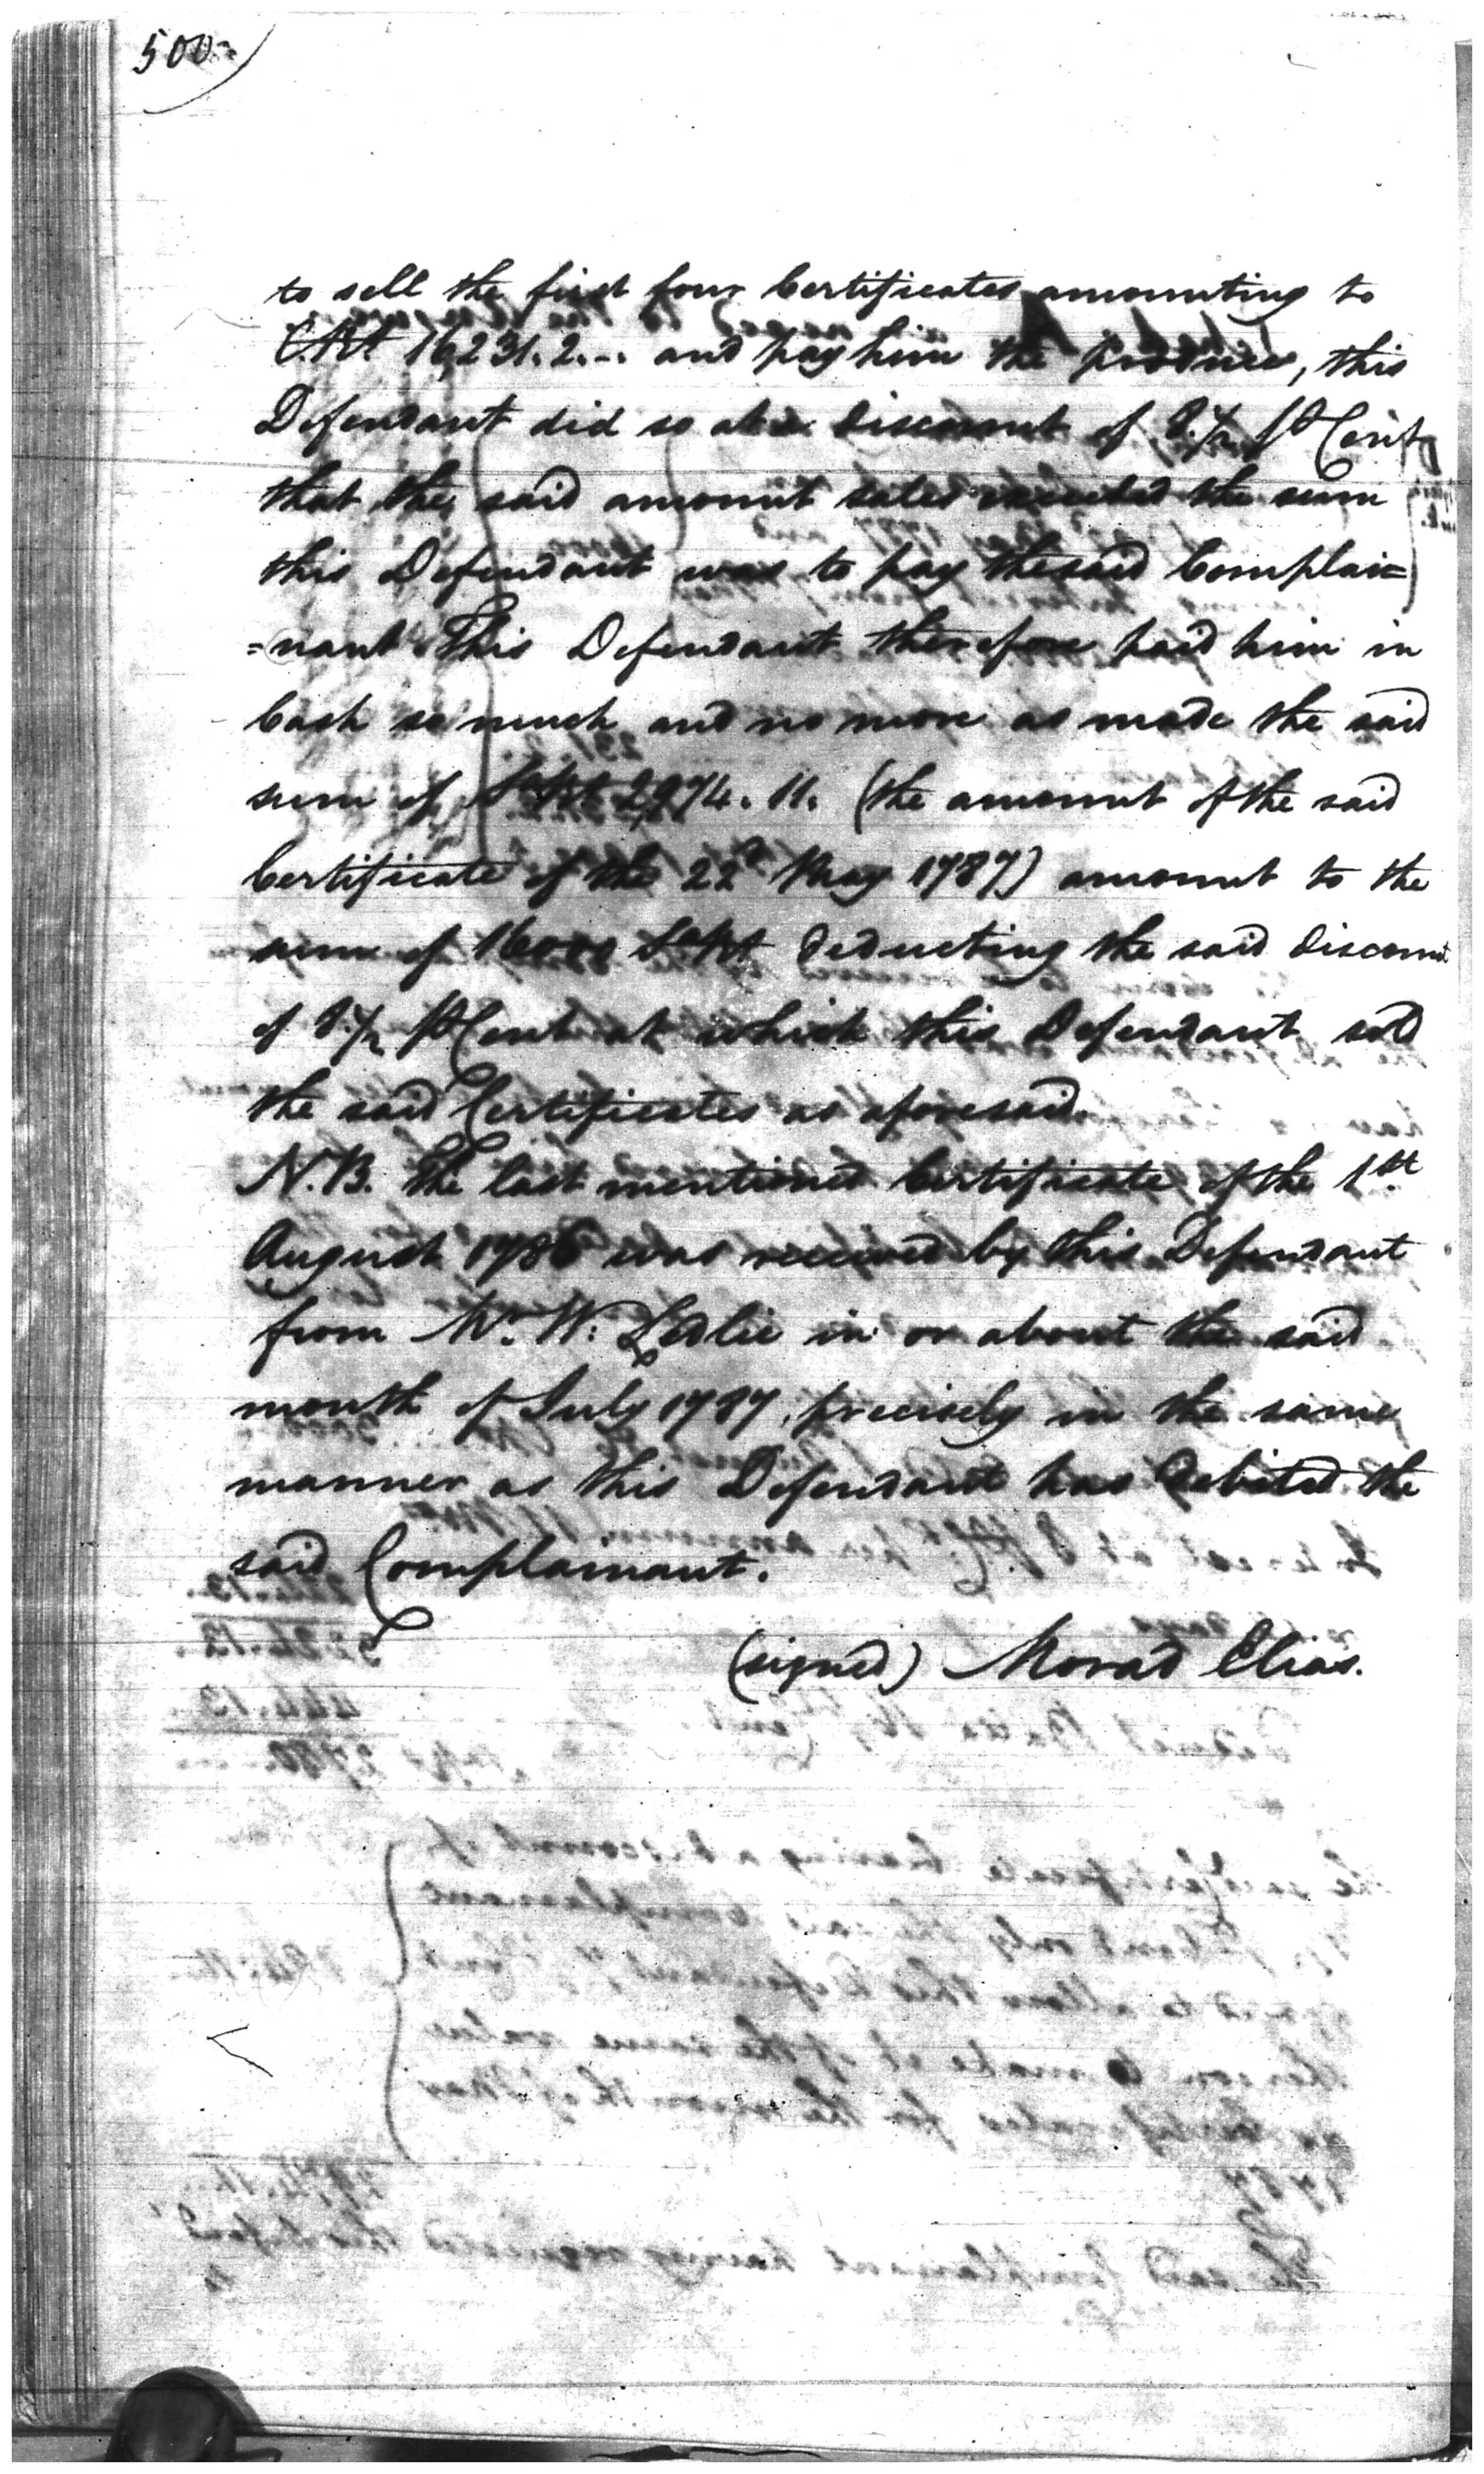 500
to sell the first four Certificates amounting to
C.Rs 16,231.2.-. and pay him the produce, this
Defendant did so at a discount of 8.½ P Cent
that the said amount sales exceeded the sum
this Defendant was to pay the said Complai=
=nant This Defendant therefore paid him in
Cash so much and no more as made the said
sum of SaRs 2,974.11. (the amount of the said
Certificate of the 22d May 1787) amount to the
sum of 16000 SaRs deducting the said discount
of 8.½ P Cent at which this Defendant sold
the said Certificates as aforesaid.
N.B. The last mentioned Certificate of the 1st
August 1786 was received by this Defendant
from Mr. W: Ledlie in or about the said
month of July 1787, precisely in the same
manner as this Defendant has debited the
said Complainant.
(signed) Morad Elias.